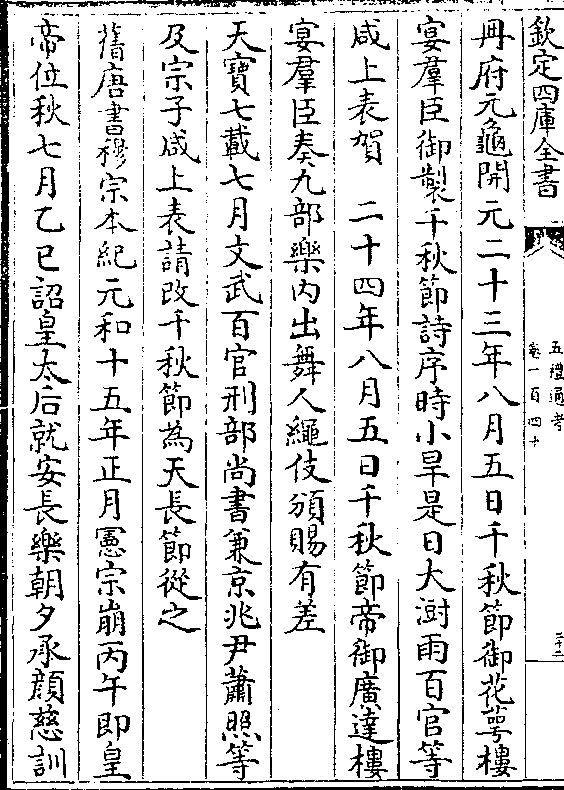 欽定四庫全書
五禮通考
卷一百四十
二十二
冊府元龜開元二十三年八月五日千秋節御花萼樓
宴羣臣御製千秋節詩序時小旱是日大澍雨百官等
咸上表賀　二十四年八月五日千秋節帝御廣達樓
宴羣臣奏九部樂內出舞人繩伎頒賜有差
天寶七載七月文武百官刑部尚書兼京兆尹蕭照等
及宗子咸上表請改千秋節為天長節從之
舊唐書穆宗本紀元和十五年正月憲宗崩丙午即皇
帝位秋七月乙巳詔皇太后就安長樂朝夕承顔慈訓